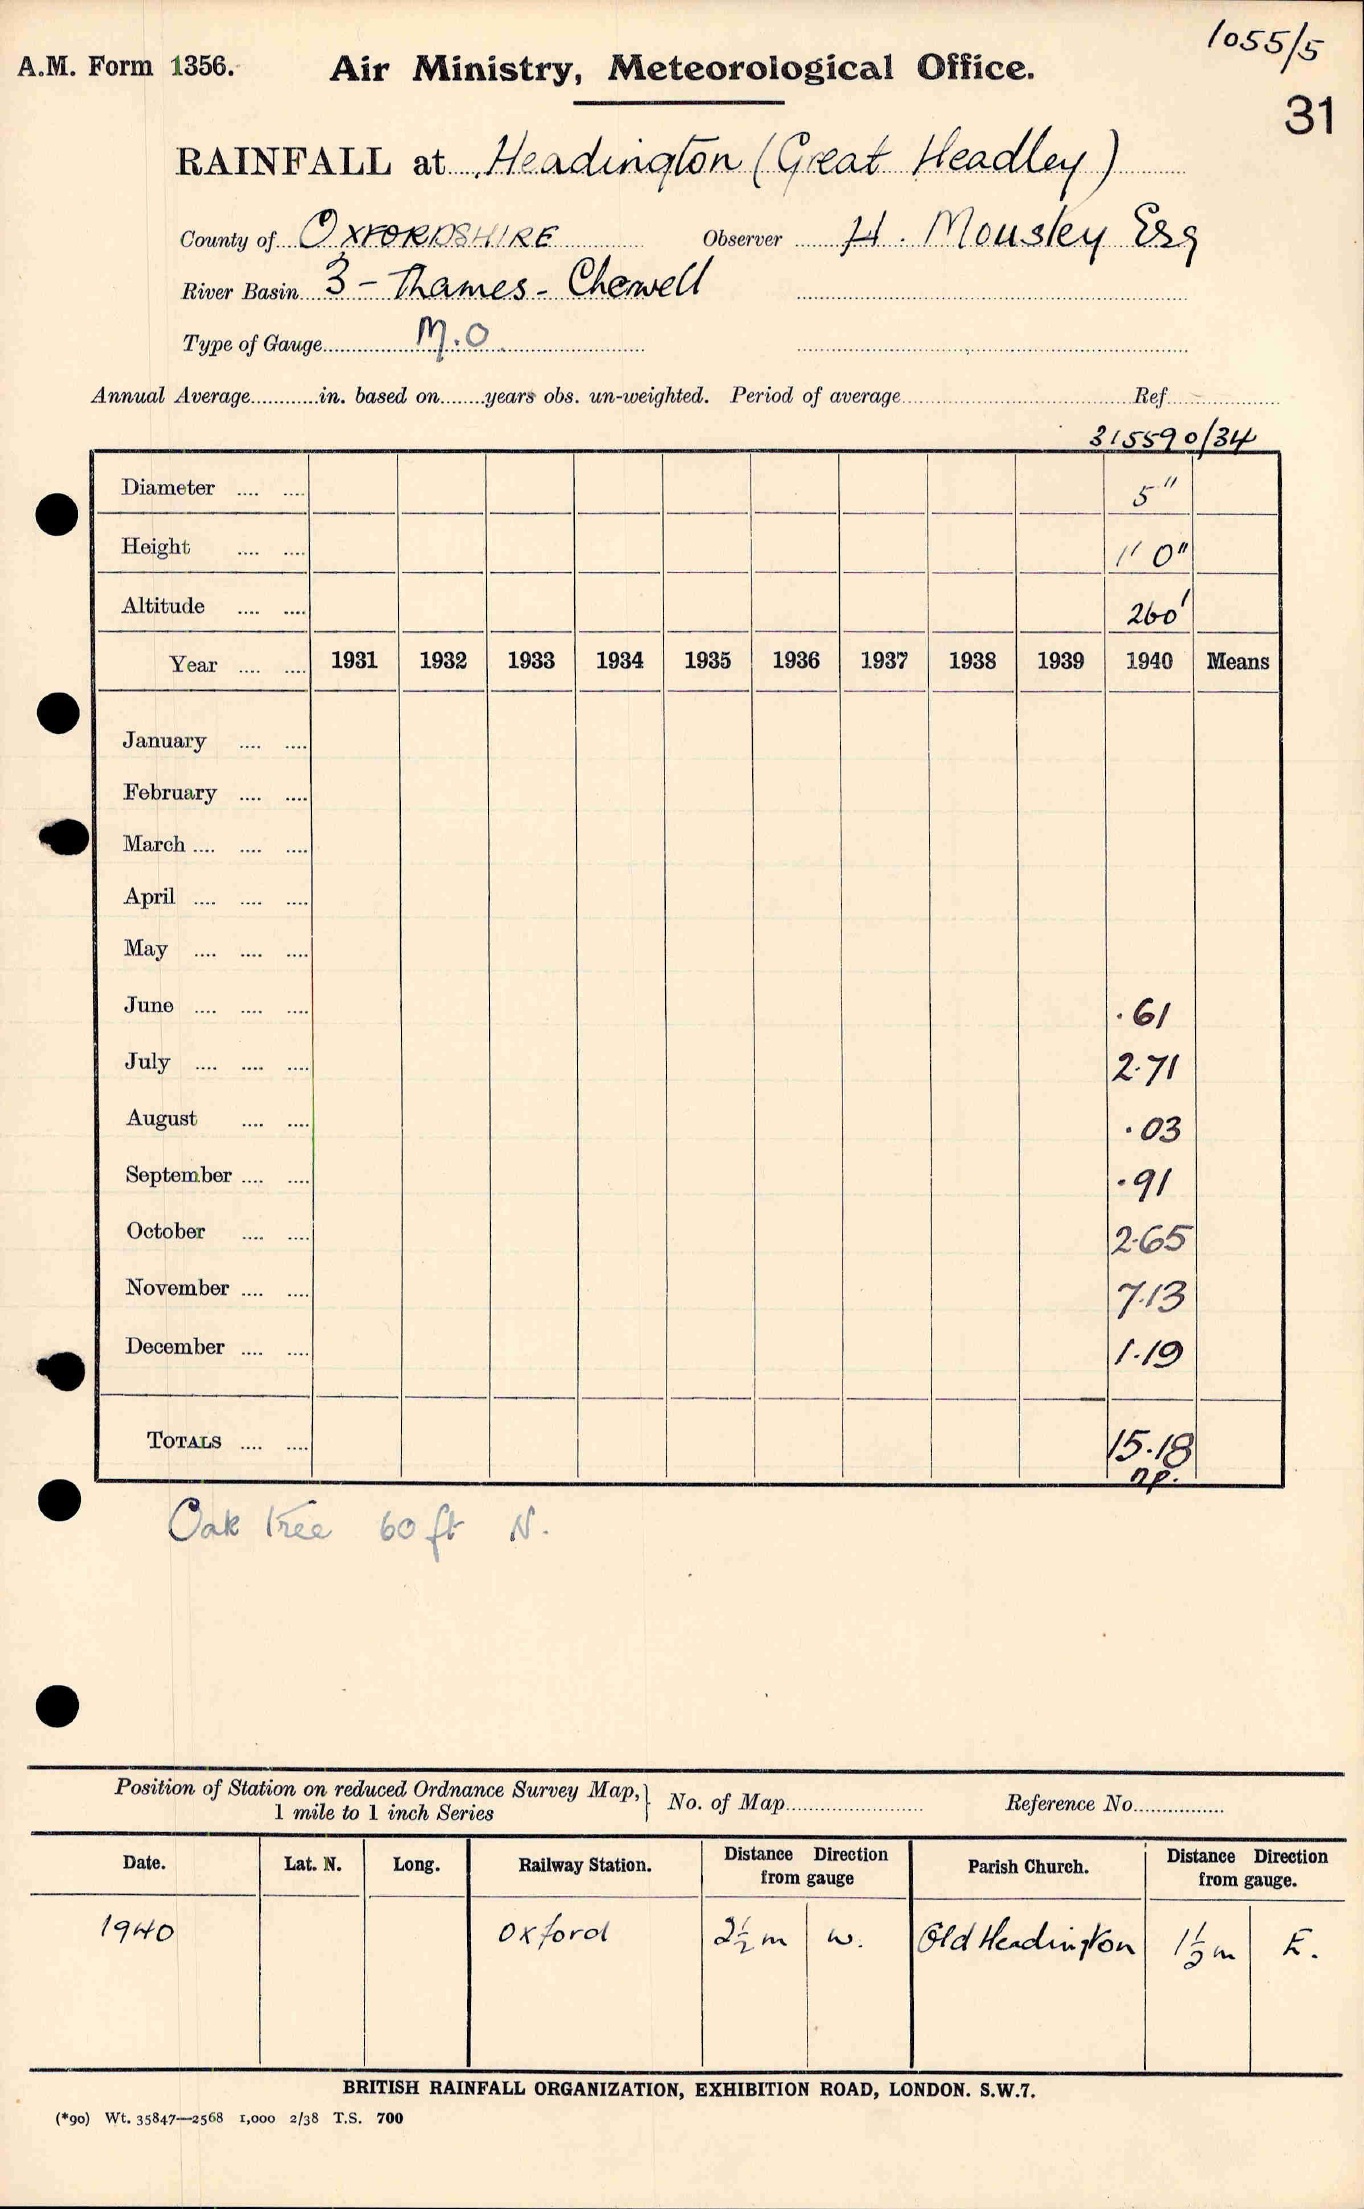 1055/5
A.M. Form 1356. Air Ministry, Meteorological Office.
31
RAINFALL at Headington (Great Headley)
County of OXFORDSHIRE Observer H. Mousley Esq
River Basin 3 - Thames - Cherwell
Type of Gauge M.O
Annual Average............in. based on.......years obs. un-weighted. Period of average............ Ref............
315590/34
Diameter .... .... 5"
Height .... .... 1' 0"
Altitude .... .... 260'
Year .... .... 1931 1932 1933 1934 1935 1936 1937 1938 1939 1940 Means
January .... ....
February .... ....
March .... .... ....
April .... .... ....
May .... .... ....
June .... .... .... .61
July .... .... .... 2.71
August .... .... .03
September .... .... .91
October .... .... 2.65
November .... .... 7.13
December .... .... 1.19
TOTALS .... .... 15.18
np.
Oak tree 60 ft N.
Position of Station on reduced Ordnance Survey Map, } No. of Map............ Reference No............
1 mile to 1 inch Series
Date. Lat. N. Long. Railway Station. Distance Direction from gauge Parish Church. Distance Direction from gauge.
1940 Oxford 2½ m W. Old Headington 1½ m E.
BRITISH RAINFALL ORGANIZATION, EXHIBITION ROAD, LONDON. S.W.7.
(*90) Wt. 35847—2568 1,000 2/38 T.S. 700